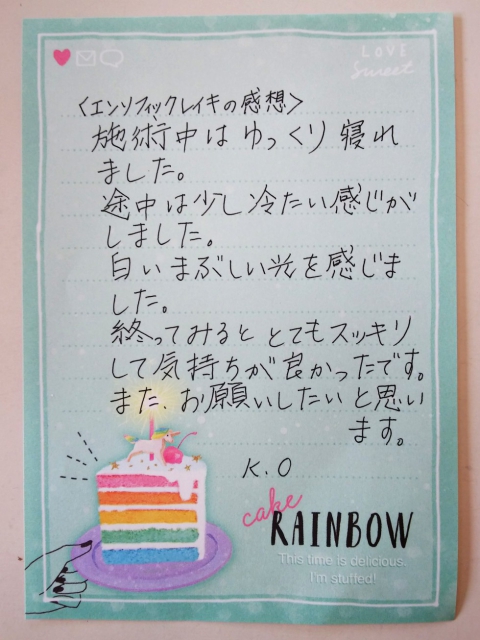 LOVE
Sweet
〈エンソフィックレイキの感想〉
施術中はゆっくり寝れ
ました。
途中は少し冷たい感じが
しました。
白いまぶしい光を感じま
した。
終ってみるととてもスッキリ
して気持ちが良かったです。
また、お願いしたいと思い
ます。
K.O
cake
RAINBOW
This time is delicious.
I'm stuffed!